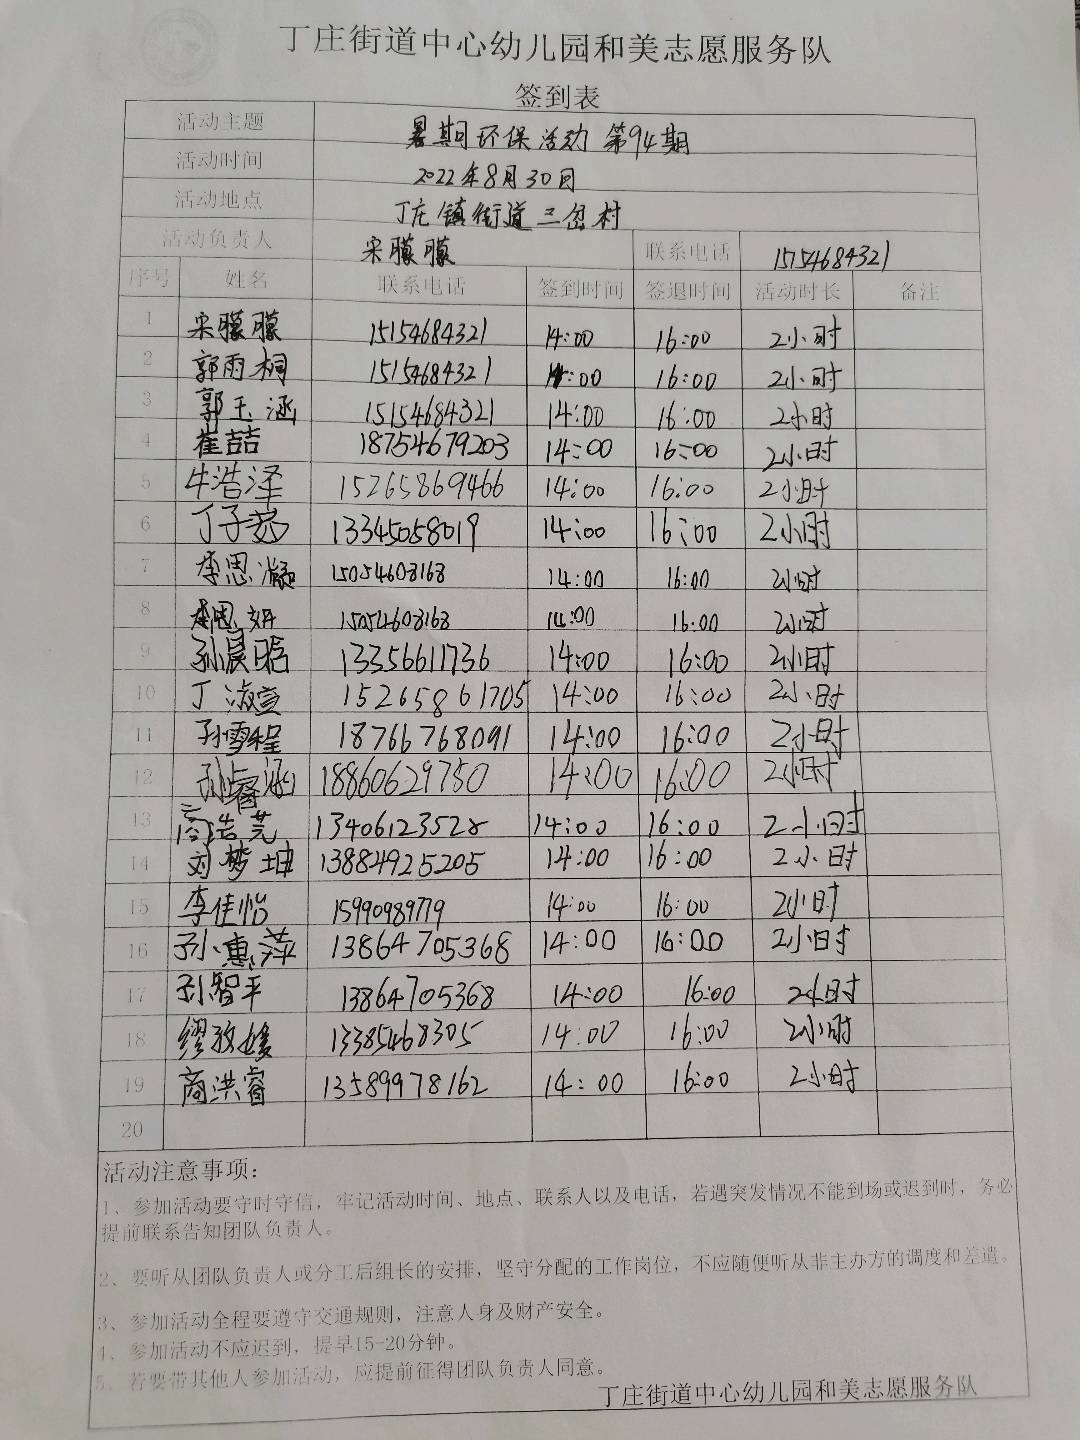 丁庄街道中心幼儿园和美志愿服务队
签到表
活动主题 暑期环保活动 第94期
活动时间 2022年8月30日
活动地点 丁庄镇街道三岔村
活动负责人 宋朦朦 联系电话 15154684321
序号 姓名 联系电话 签到时间 签退时间 活动时长 备注
1 宋朦朦 15154684321 14:00 16:00 2小时
2 郭雨桐 15154684321 14:00 16:00 2小时
3 郭玉涵 15154684321 14:00 16:00 2小时
4 崔喆 18754679203 14:00 16:00 2小时
5 牛浩泽 15265869466 14:00 16:00 2小时
6 丁子茹 13345058019 14:00 16:00 2小时
7 李思凝 15054608168 14:00 16:00 2小时
8 李思妍 15054608168 14:00 16:00 2小时
9 孙晨晗 13356611736 14:00 16:00 2小时
10 丁淑萱 15265861705 14:00 16:00 2小时
11 孙雪程 18766768091 14:00 16:00 2小时
12 孙睿涵 18860629750 14:00 16:00 2小时
13 高浩芫 13406123528 14:00 16:00 2小时
14 刘梦坤 13884925205 14:00 16:00 2小时
15 李佳怡 15990989779 14:00 16:00 2小时
16 孙惠萍 13864705368 14:00 16:00 2小时
17 孙智平 13864705368 14:00 16:00 2小时
18 缪孜媛 13385468305 14:00 16:00 2小时
19 商洪睿 13589978162 14:00 16:00 2小时
20
活动注意事项：
1、参加活动要守时守信，牢记活动时间、地点、联系人以及电话，若遇突发情况不能到场或迟到时，务必
提前联系告知团队负责人。
2、要听从团队负责人或分工后组长的安排，坚守分配的工作岗位，不应随便听从非主办方的调度和差遣。
3、参加活动全程要遵守交通规则，注意人身及财产安全。
4、参加活动不应迟到，提早15-20分钟。
5、若要带其他人参加活动，应提前征得团队负责人同意。
丁庄街道中心幼儿园和美志愿服务队